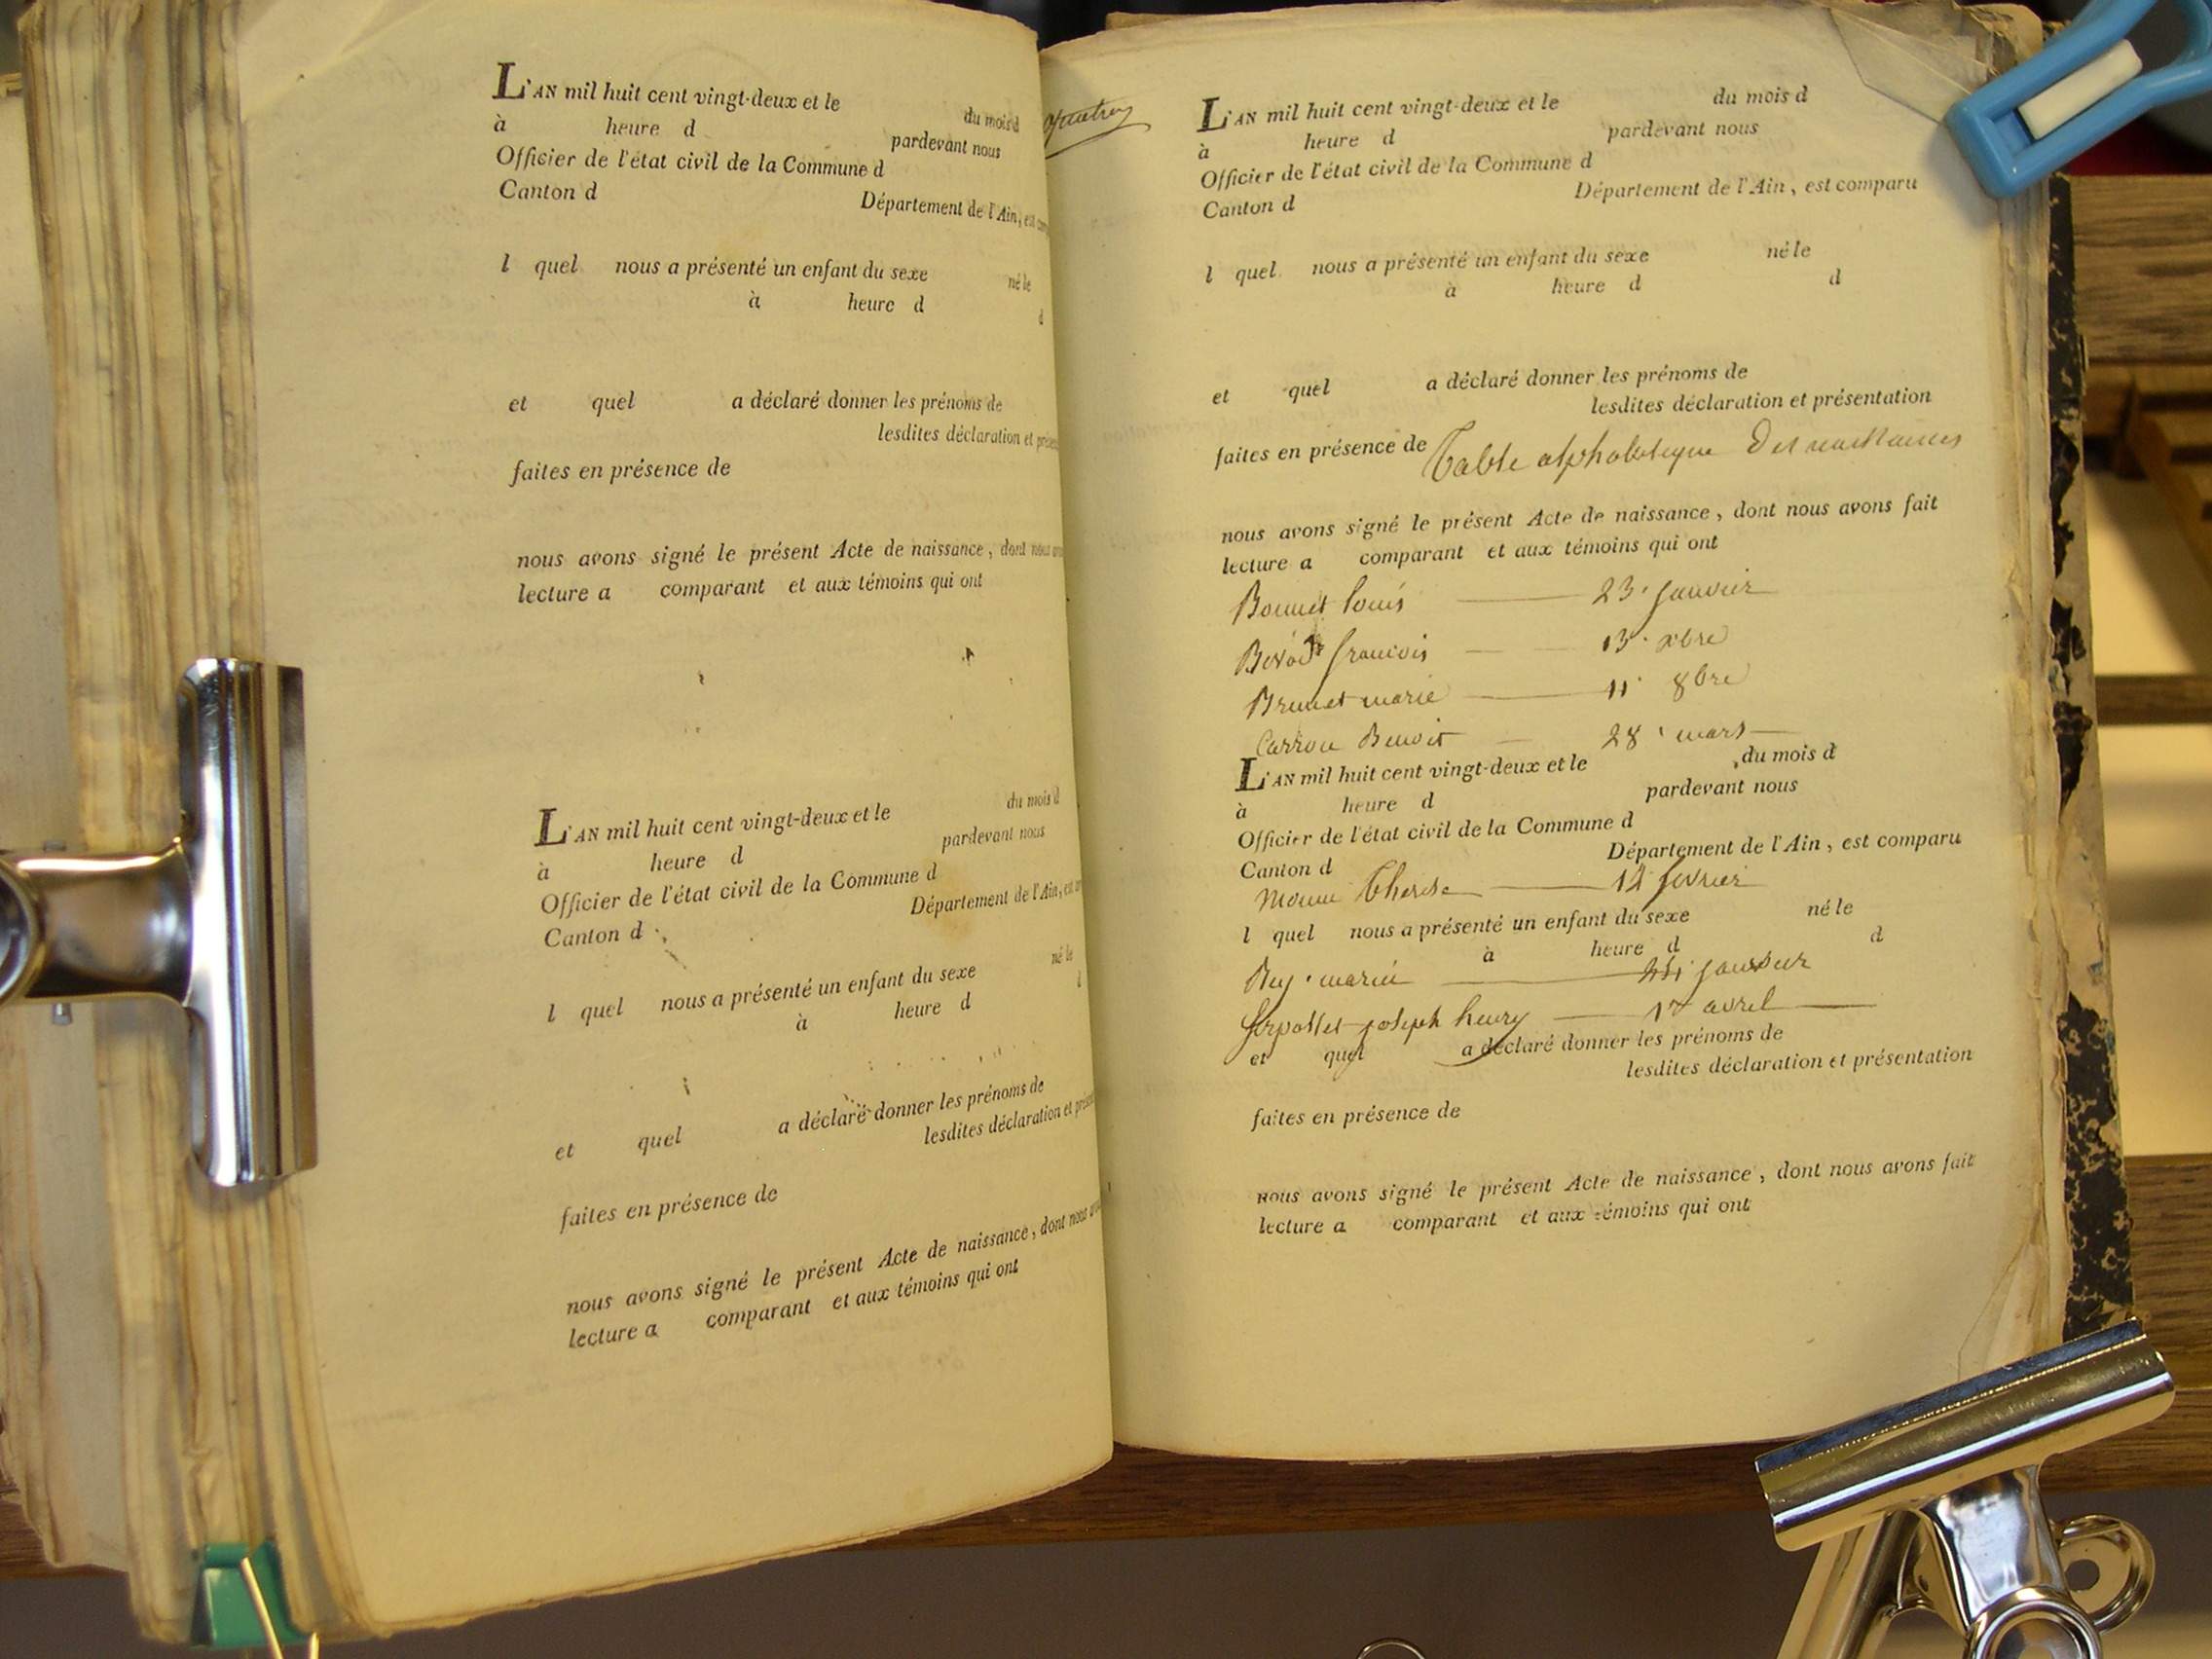 L'AN mil huit cent vingt-deux et le du mois d
à heure d pardevant nous
Officier de l'état civil de la Commune d
Canton d Département de l'Ain, est
l quel nous a présenté un enfant du sexe né le
à heure d d
et quel a déclaré donner les prénoms de
lesdites déclaration et
faites en présence de
nous avons signé le présent Acte de naissance, dont nous
lecture a comparant et aux témoins qui ont
L'AN mil huit cent vingt-deux et le du mois d
à heure d pardevant nous
Officier de l'état civil de la Commune d
Canton d Département de l'Ain, est
l quel nous a présenté un enfant du sexe né le
à heure d d
et quel a déclaré donner les prénoms de
lesdites déclaration et
faites en présence de
nous avons signé le présent Acte de naissance, dont nous
lecture a comparant et aux témoins qui ont
L'AN mil huit cent vingt-deux et le du mois d
à heure d pardevant nous
Officier de l'état civil de la Commune d
Canton d Département de l'Ain, est comparu
l quel nous a présenté un enfant du sexe né le
à heure d d
et quel a déclaré donner les prénoms de
lesdites déclaration et présentation
faites en présence de Table alphabetique Des naissances
nous avons signé le présent Acte de naissance, dont nous avons fait
lecture a comparant et aux témoins qui ont
Bonnet Louis 23 janvier
francois 13 xbre
Brunet marie 11 8bre
Carron Benoit 28 mars
L'AN mil huit cent vingt-deux et le du mois d
à heure d pardevant nous
Officier de l'état civil de la Commune d
Canton d Département de l'Ain, est comparu
Therese fevrier
l quel nous a présenté un enfant du sexe né le
à heure d d
Rey marie janvier
joseph henry 17 avril
et quel a déclaré donner les prénoms de
lesdites déclaration et présentation
faites en présence de
nous avons signé le présent Acte de naissance, dont nous avons fait
lecture a comparant et aux témoins qui ont